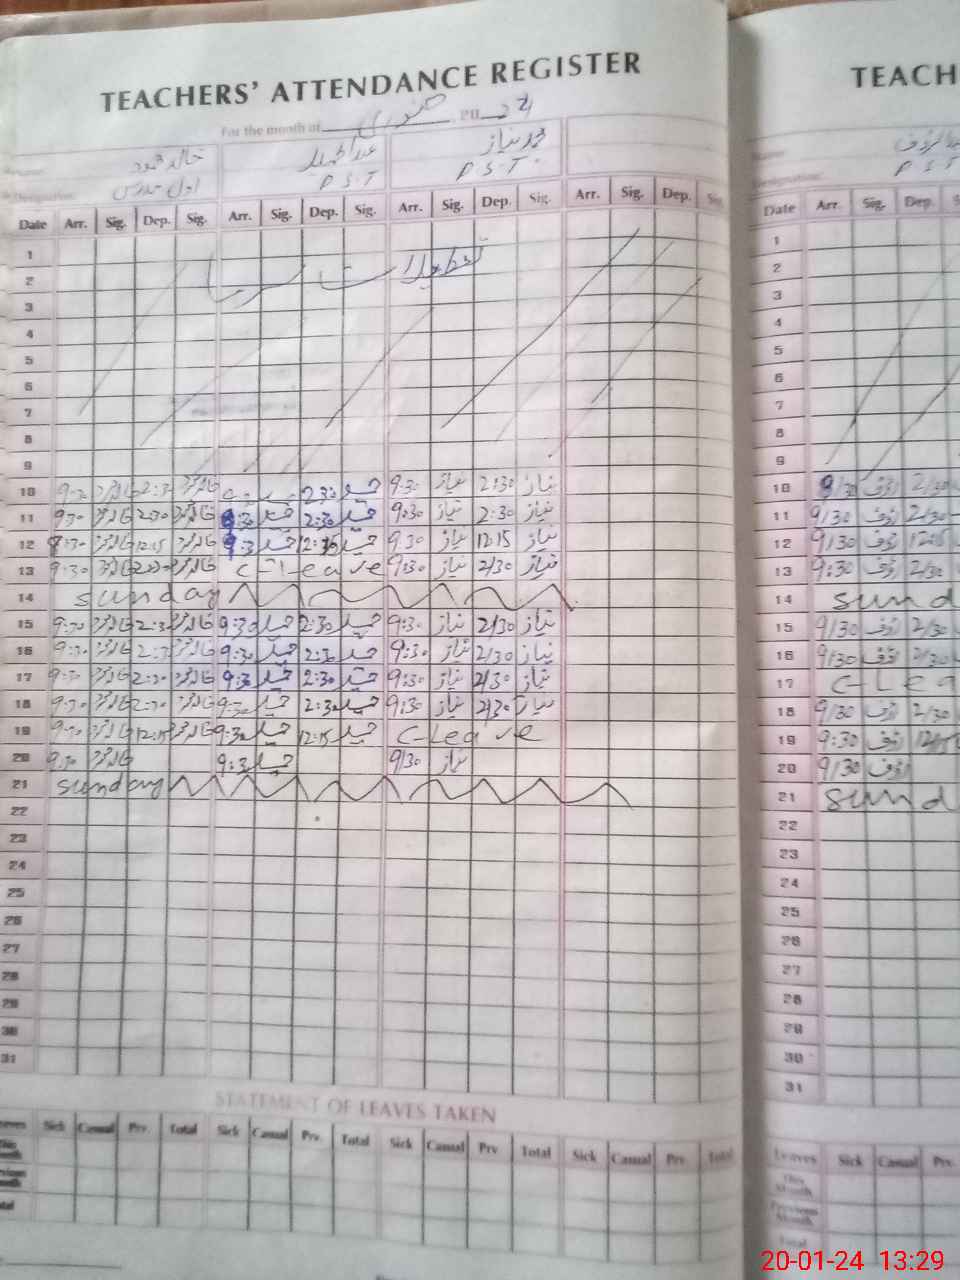 TEACHERS' ATTENDANCE REGISTER
For the month of جنوری 2024
خالد محمود عبدالحمید محمد نیاز
اول مدرس P.S.T P.S.T
Date Arr. Sig. Dep. Sig. Arr. Sig. Dep. Sig. Arr. Sig. Dep. Sig. Arr. Sig. Dep. Sig.
1
2 تعطیلات سرما
3
4
5
6
7
8
9
10 9:30 2:30 2:30 حمید 9:30 نیاز 2:30 نیاز
11 9:30 2:30 9:30 حمید 2:30 حمید 9:30 نیاز 2:30 نیاز
12 9:30 12:15 9:3 حمید حمید 9:30 نیاز 12:15 نیاز
13 9:30 C-Leave 9:30 نیاز 2/30 نیاز
14 sunday
15 9:30 2:3 9:30 حمید 2:30 حمید 9:30 نیاز 2/30 نیاز
16 9:30 2:3 9:30 حمید 2:30 حمید 9:30 نیاز 2/30 نیاز
17 9:30 2:30 9:30 حمید 2:30 حمید 9:30 نیاز 2/30 نیاز
18 9:30 2:30 9:30 حمید 2:30 حمید 9:30 نیاز 2/30 نیاز
19 9:30 12:15 9:30 حمید 12:15 حمید C-Leave
20 9:30 9:3 حمید 9/30 نیاز
21 sunday
22
23
24
25
26
27
28
29
30
31
STATEMENT OF LEAVES TAKEN
Sick Casual Prv. Total Sick Casual Prv. Total Sick Casual Prv Total Sick Casual Prv Total
TEACH
P.S.T
Date Arr. Sig. Dep.
1
2
3
4
5
6
7
8
9
10 9/30 رؤف 2/30
11 9/30 رؤف 2/30
12 9/30 رؤف 12:15
13 9:30 رؤف 2/30
14 sund
15 9/30 رؤف 2/30
16 9/30 رؤف 2/30
17 C-Lea
18 9/30 رؤف 2/30
19 9:30 رؤف 12/15
20 9/30 رؤف
21 sund
22
23
24
25
26
27
28
29
30
31
Leaves Sick Casual Prv.
This Month
Previous Month
Total
20-01-24 13:29